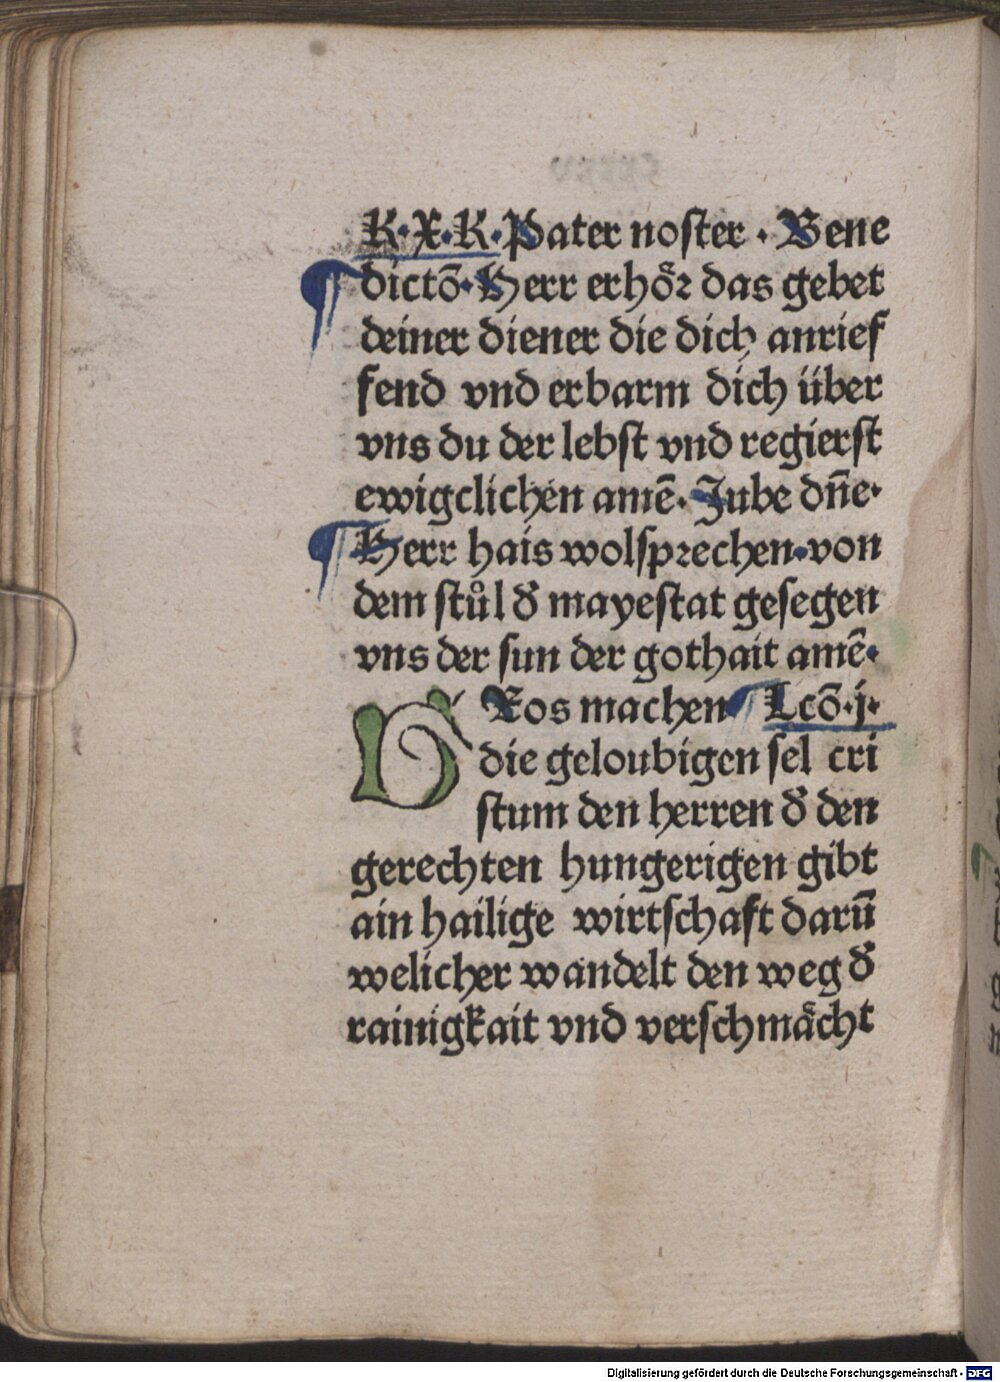 K·X·K·Pater noſter · Bene
dictō·Herr erhoͤꝛ das gebet
deiner diener die dich anrief
fend vnd erbarm dich über
vns du der lebſt vnd regierſt
ewigclichen amē· Jube dn̄e·
Herr hais wolſpꝛechen·von
dem ſtůl d̕ mayeſtat geſegen
vns der ſun der gothait amē·
GRos machen Lcō·j·
die geloubigen ſel cri
ſtum den herren d̕ den
gerechten hungerigen gibt
ain hailige wirtſchaft darū
welicher wandelt den weg d̕
rainigkait vnd verſchmaͤcht
Digitalisierung gefördert durch die Deutsche Forschungsgemeinschaft - DFG